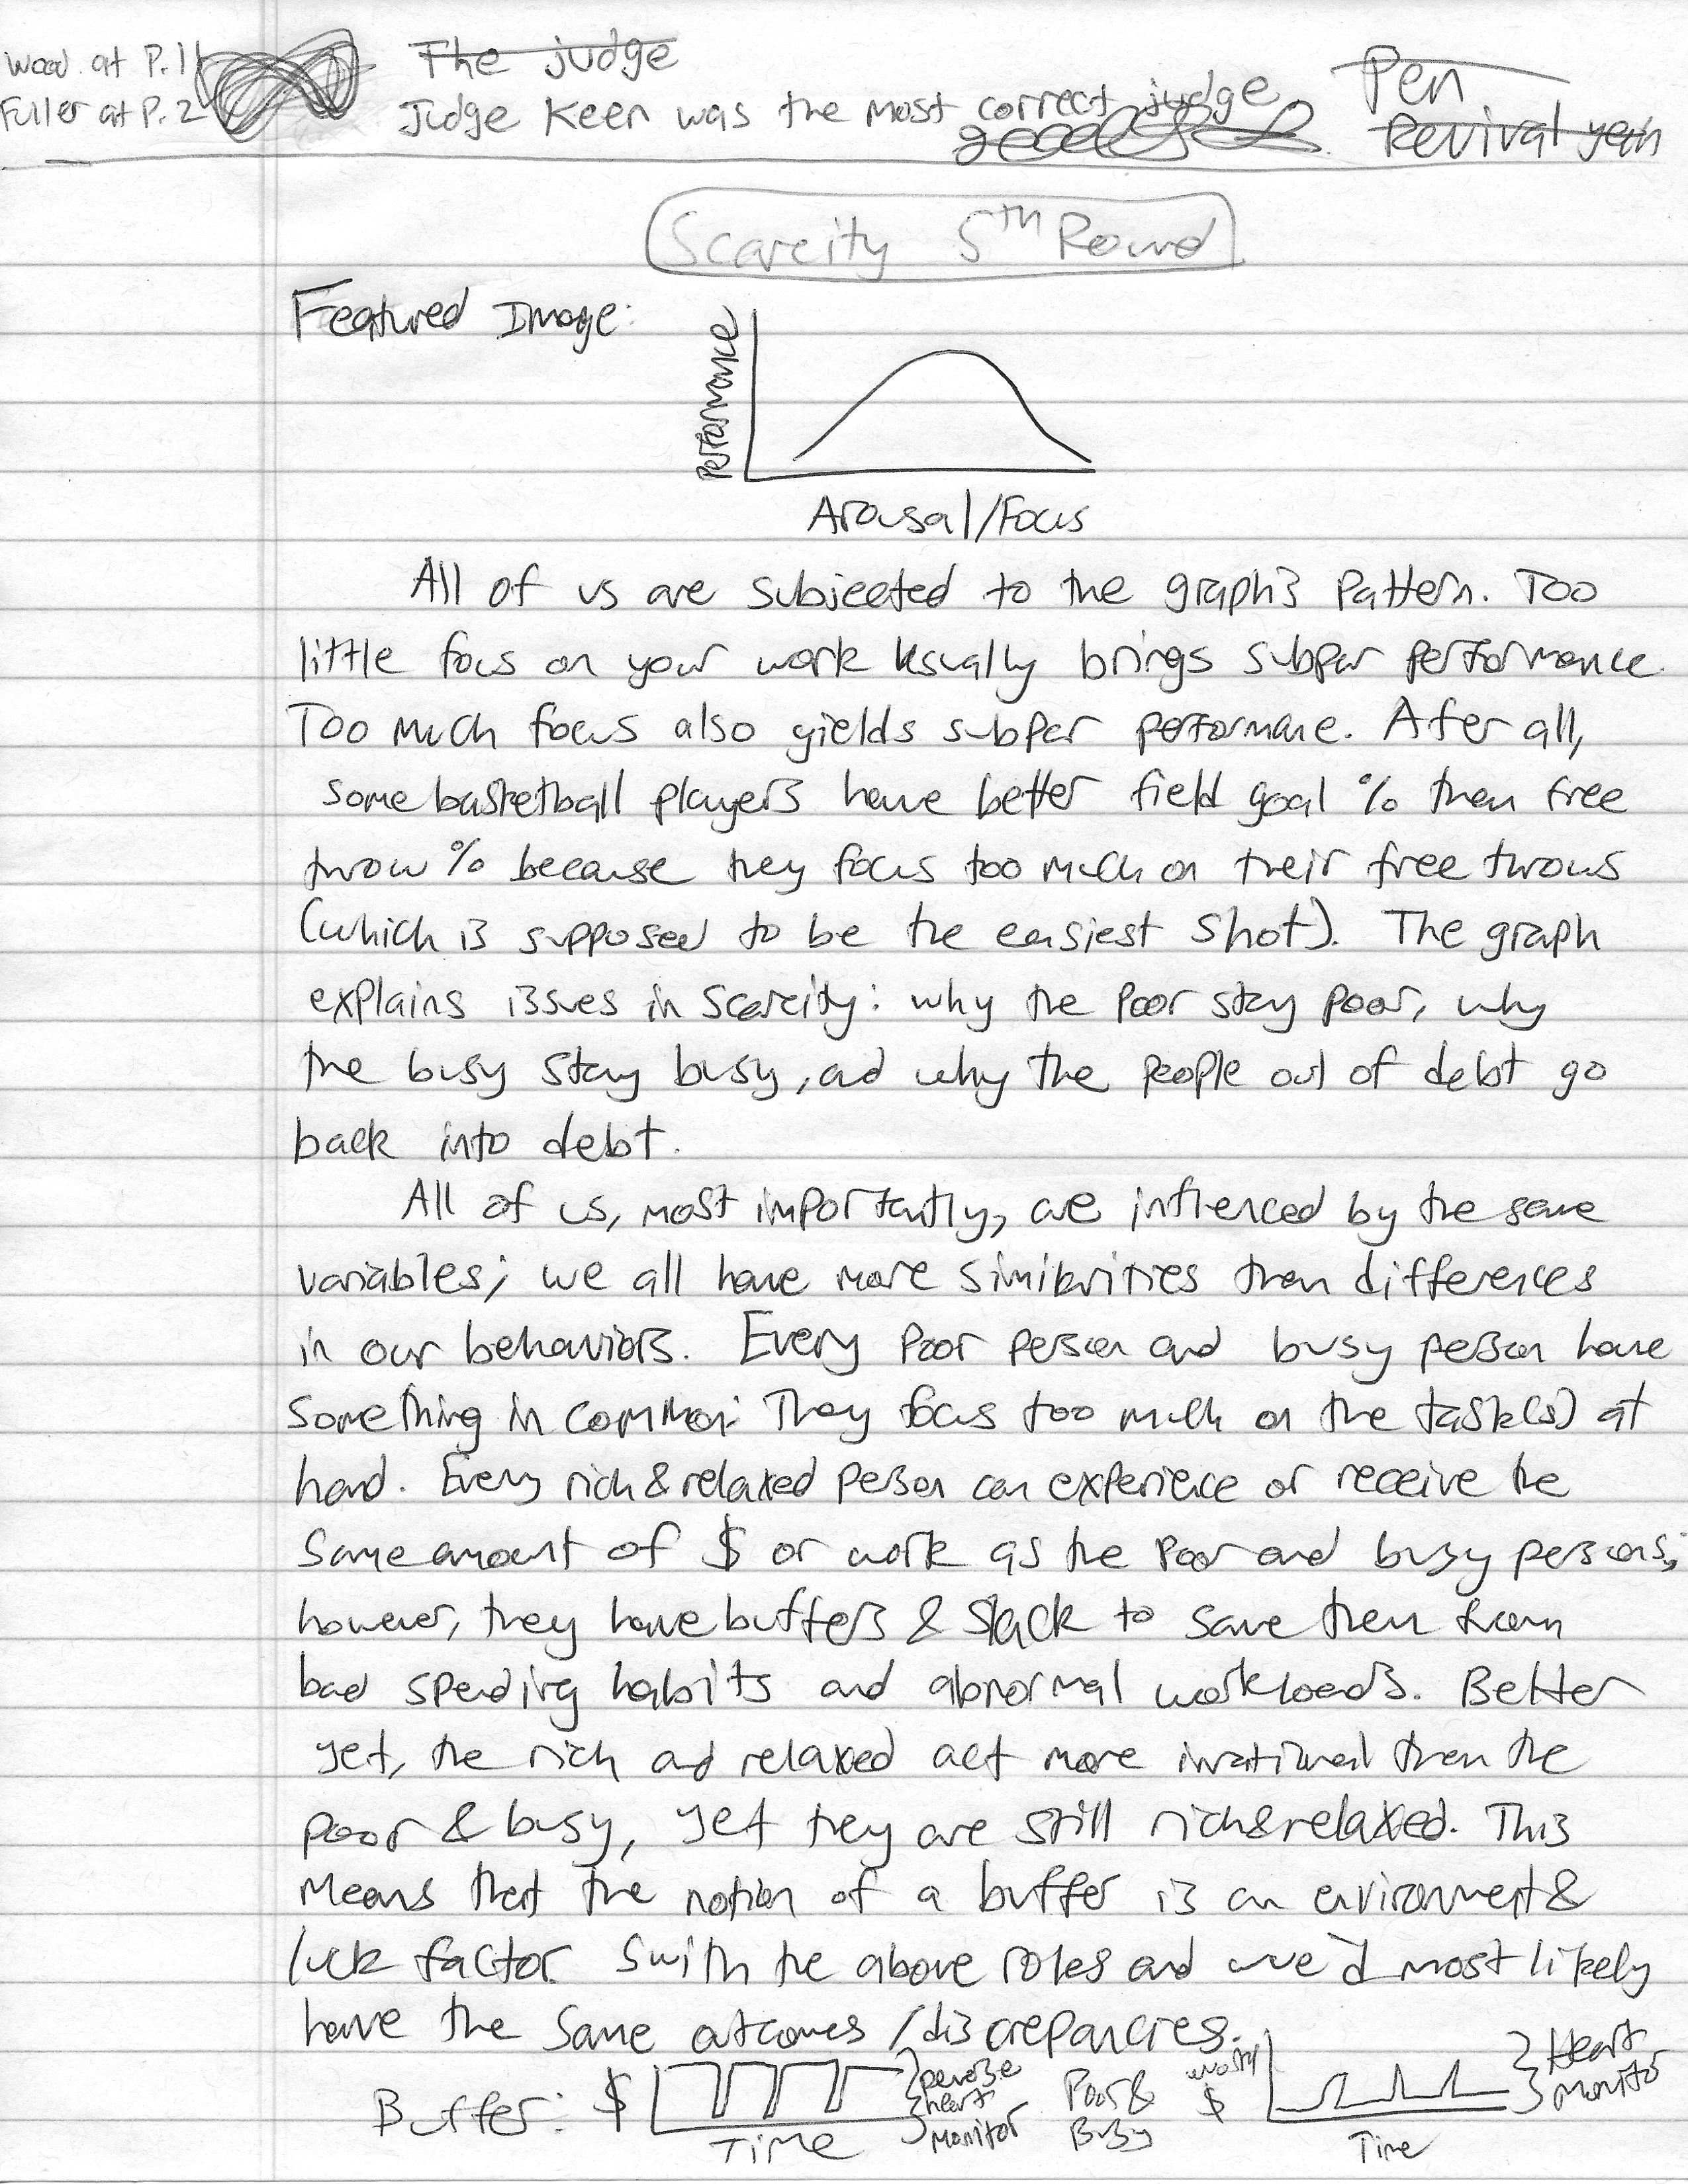 Wood at P.11
Fuller at P.2
The judge
Judge Keen was the most correct judge
Pen
Revival yeah
Scarcity 5th Round
Featured Image:
Performance
Arousal/Focus
All of us are subjected to the graph's pattern. Too
little focus on your work usually brings subpar performance.
Too much focus also yields subpar performane. After all,
some basketball players have better field goal % than free
throw % because they focus too much on their free throws
(which is supposed to be the easiest shot). The graph
explains issues in scarcity: why the poor stay poor, why
the busy stay busy, ad why the people out of debt go
back into debt.
All of us, most importantly, are influenced by the same
variables; we all have more similarities than differences
in our behaviors. Every poor person and busy person have
something in common: They focus too much on the task(s) at
hand. Every rich & relaxed person can experience or receive the
same amount of $ or work as the poor and busy persons;
however, they have buffers & slack to save them from
bad spending habits and abnormal workloads. Better
yet, the rich ad relaxed act more irrational than the
poor & busy, yet they are still rich & relaxed. This
means that the notion of a buffer is an environment &
luck factor. Swith the above roles and we'd most likely
have the same outcomes / discrepancies.
Buffer: $
Time
reverse
heart
monitor
Poor &
Busy
$
Time
Heart
monitor